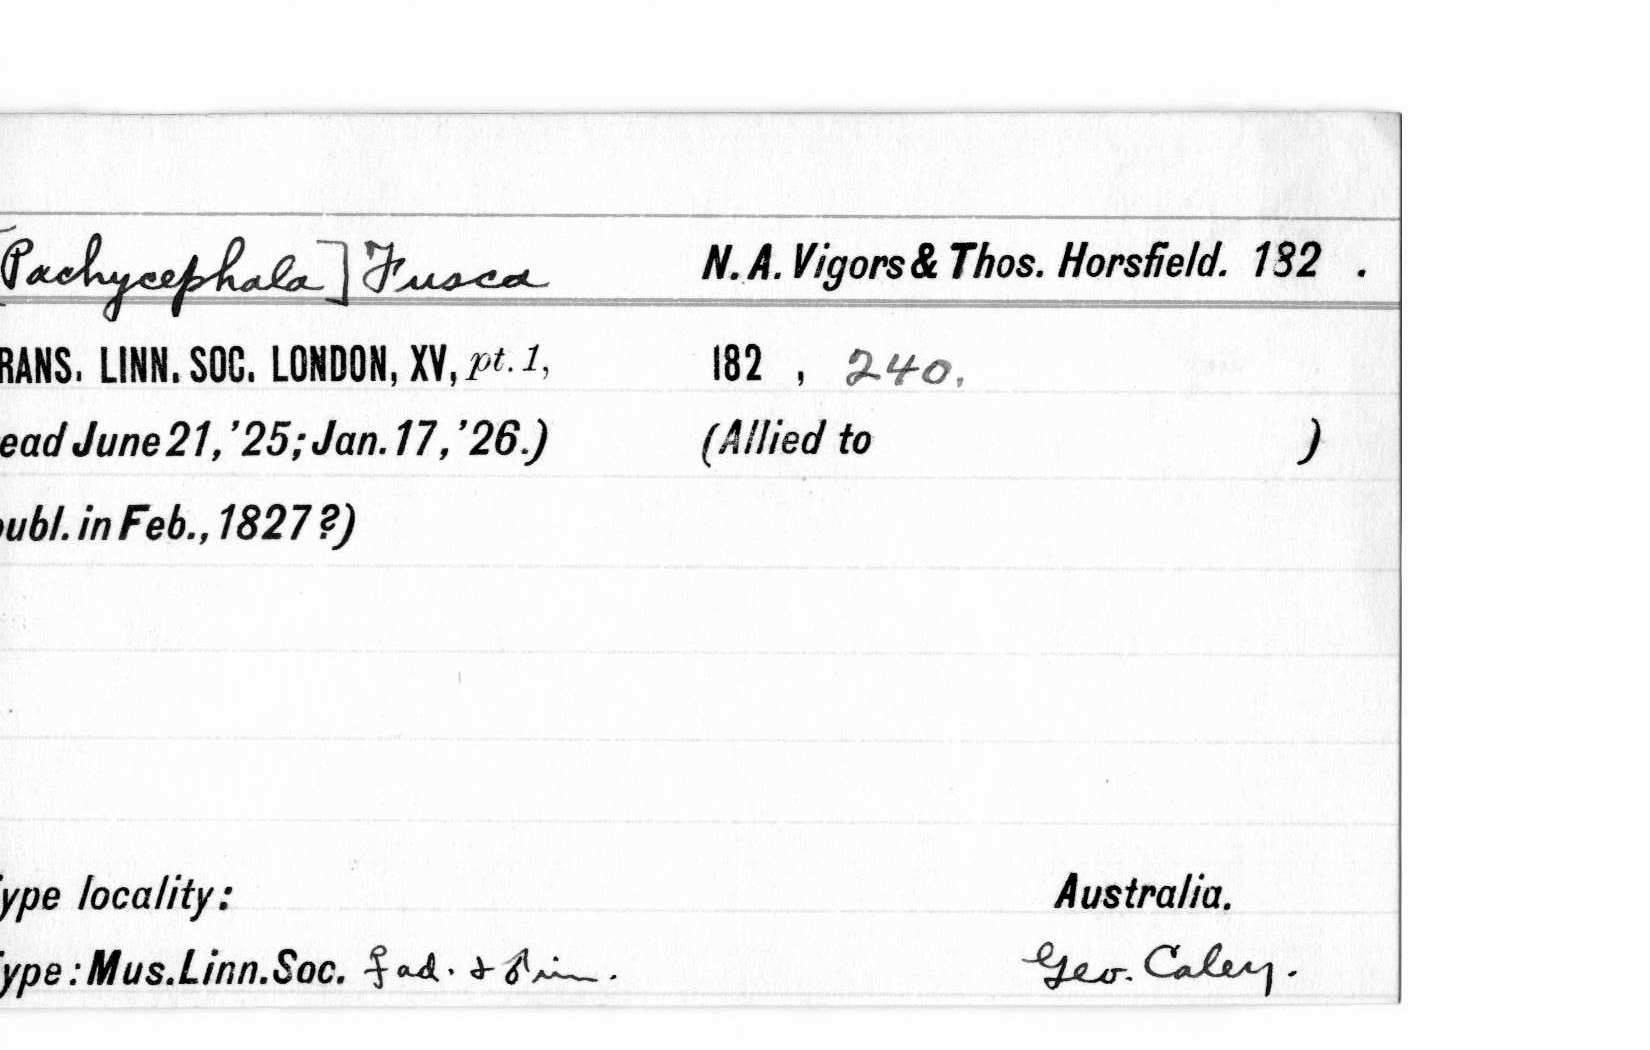 [Pachycephala] Fusca N. A. Vigors & Thos. Horsfield. 182 .
RANS. LINN. SOC. LONDON, XV, pt. 1, 182 , 240.
ead June 21, '25; Jan. 17, '26.) (Allied to )
publ. in Feb., 1827 ?)
Type locality: Australia.
Type: Mus. Linn. Soc. ♀ ad. & ♂ im. Geo. Caley.